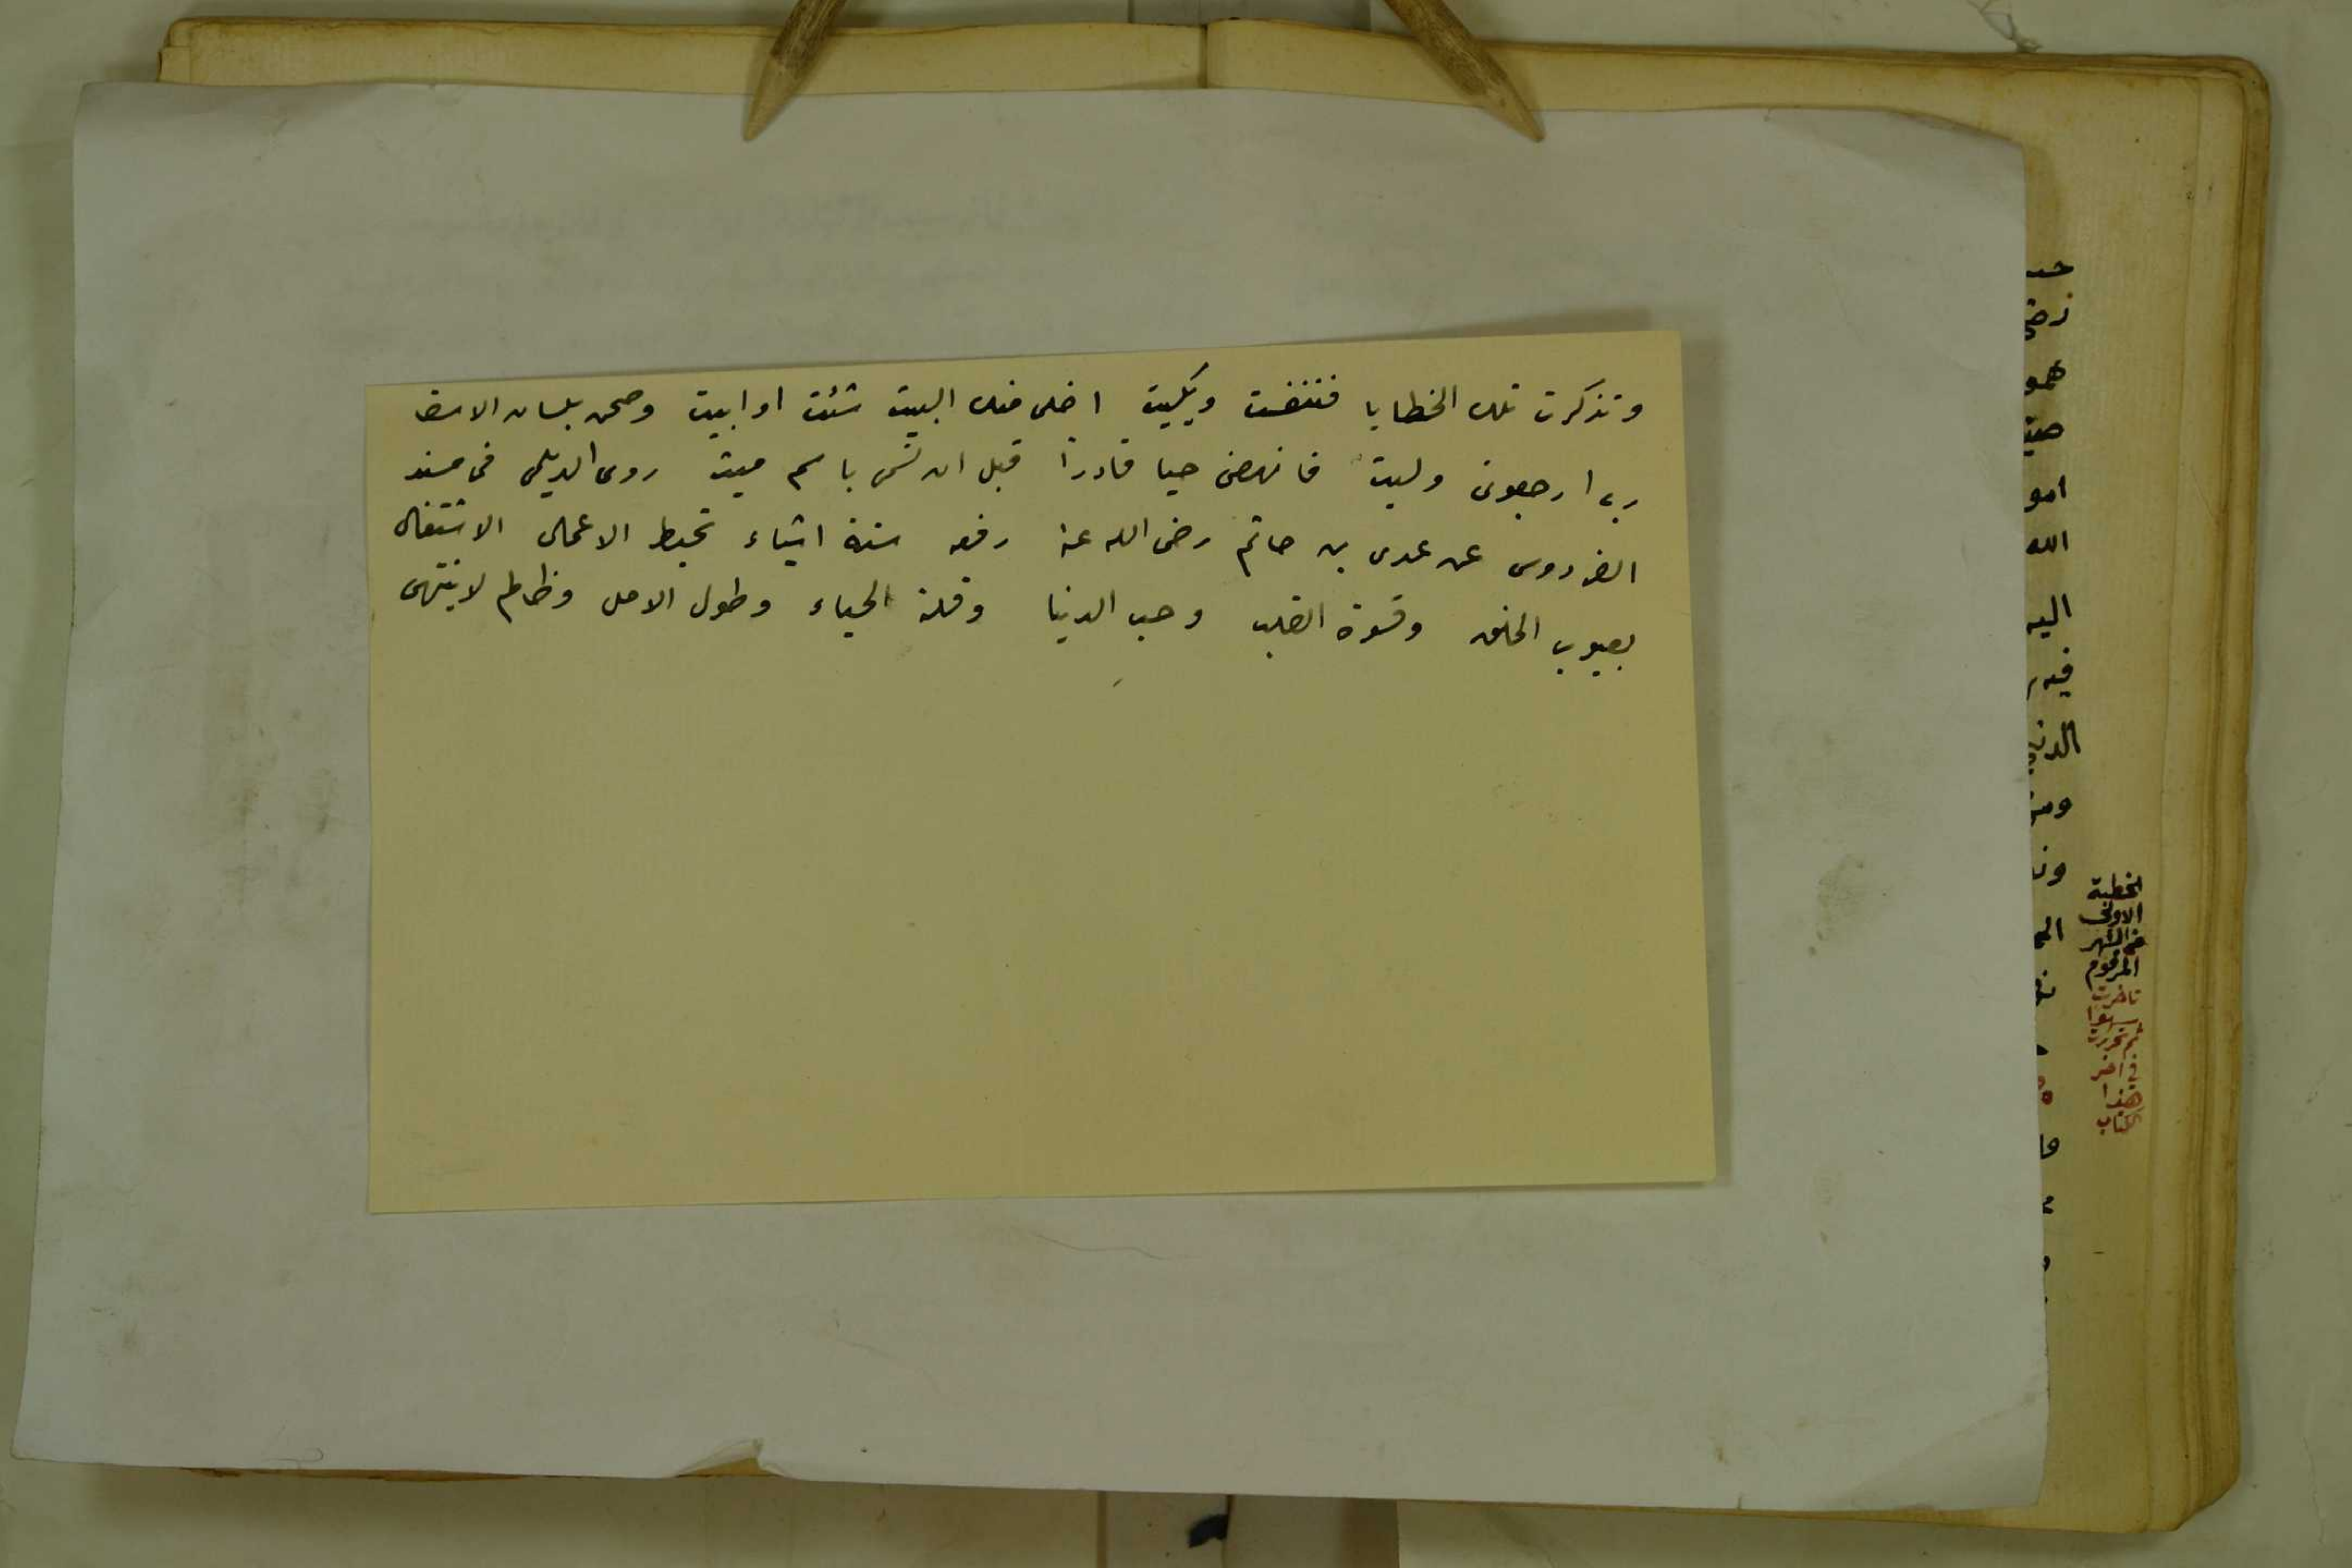 وتذكرت تلك الخطايا فتنغصت وبكيت اخلى منك البيت شئت او ابيت وصحت بلسان الاسف
رب ارجعونى وليت فانهض حيا قادرا قبل ان تسمى باسم ميت روى الديلمى فى مسند
الفردوس عن عدى بن حاتم رضى الله عنه رفعه ستة اشياء تحبط الاعمال الاشتغال
بعيوب الخلق وقسوة القلب وحب الدنيا وقلة الحياء وطول الامل وظالم لا ينتهى
الله
اليه
الخطبة
الاولى
من الشهر
المرقوم
تاخرت
سهوا
ثم تحررت
فى اخر
هذا
الكتاب